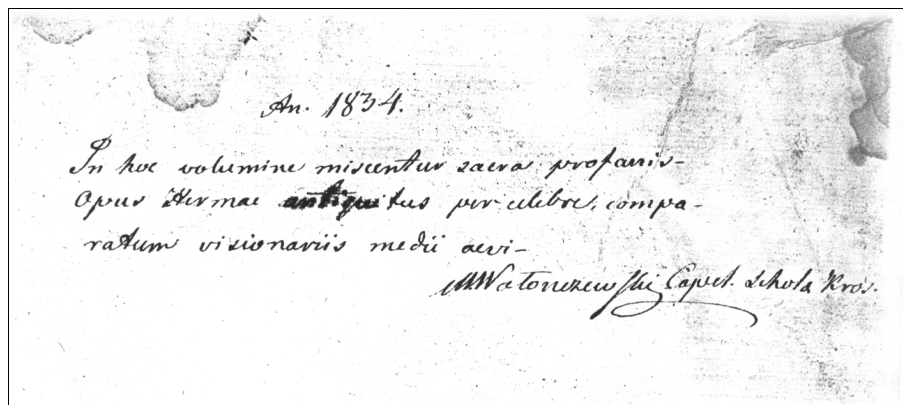 An. 1834.
In hoc volumine miscentur sacra profanis–
Opus Hermae antiquitus per celebre, compa–
ratum visionariis medii aevi–
MWołonczewski Capel. Schola Kros.